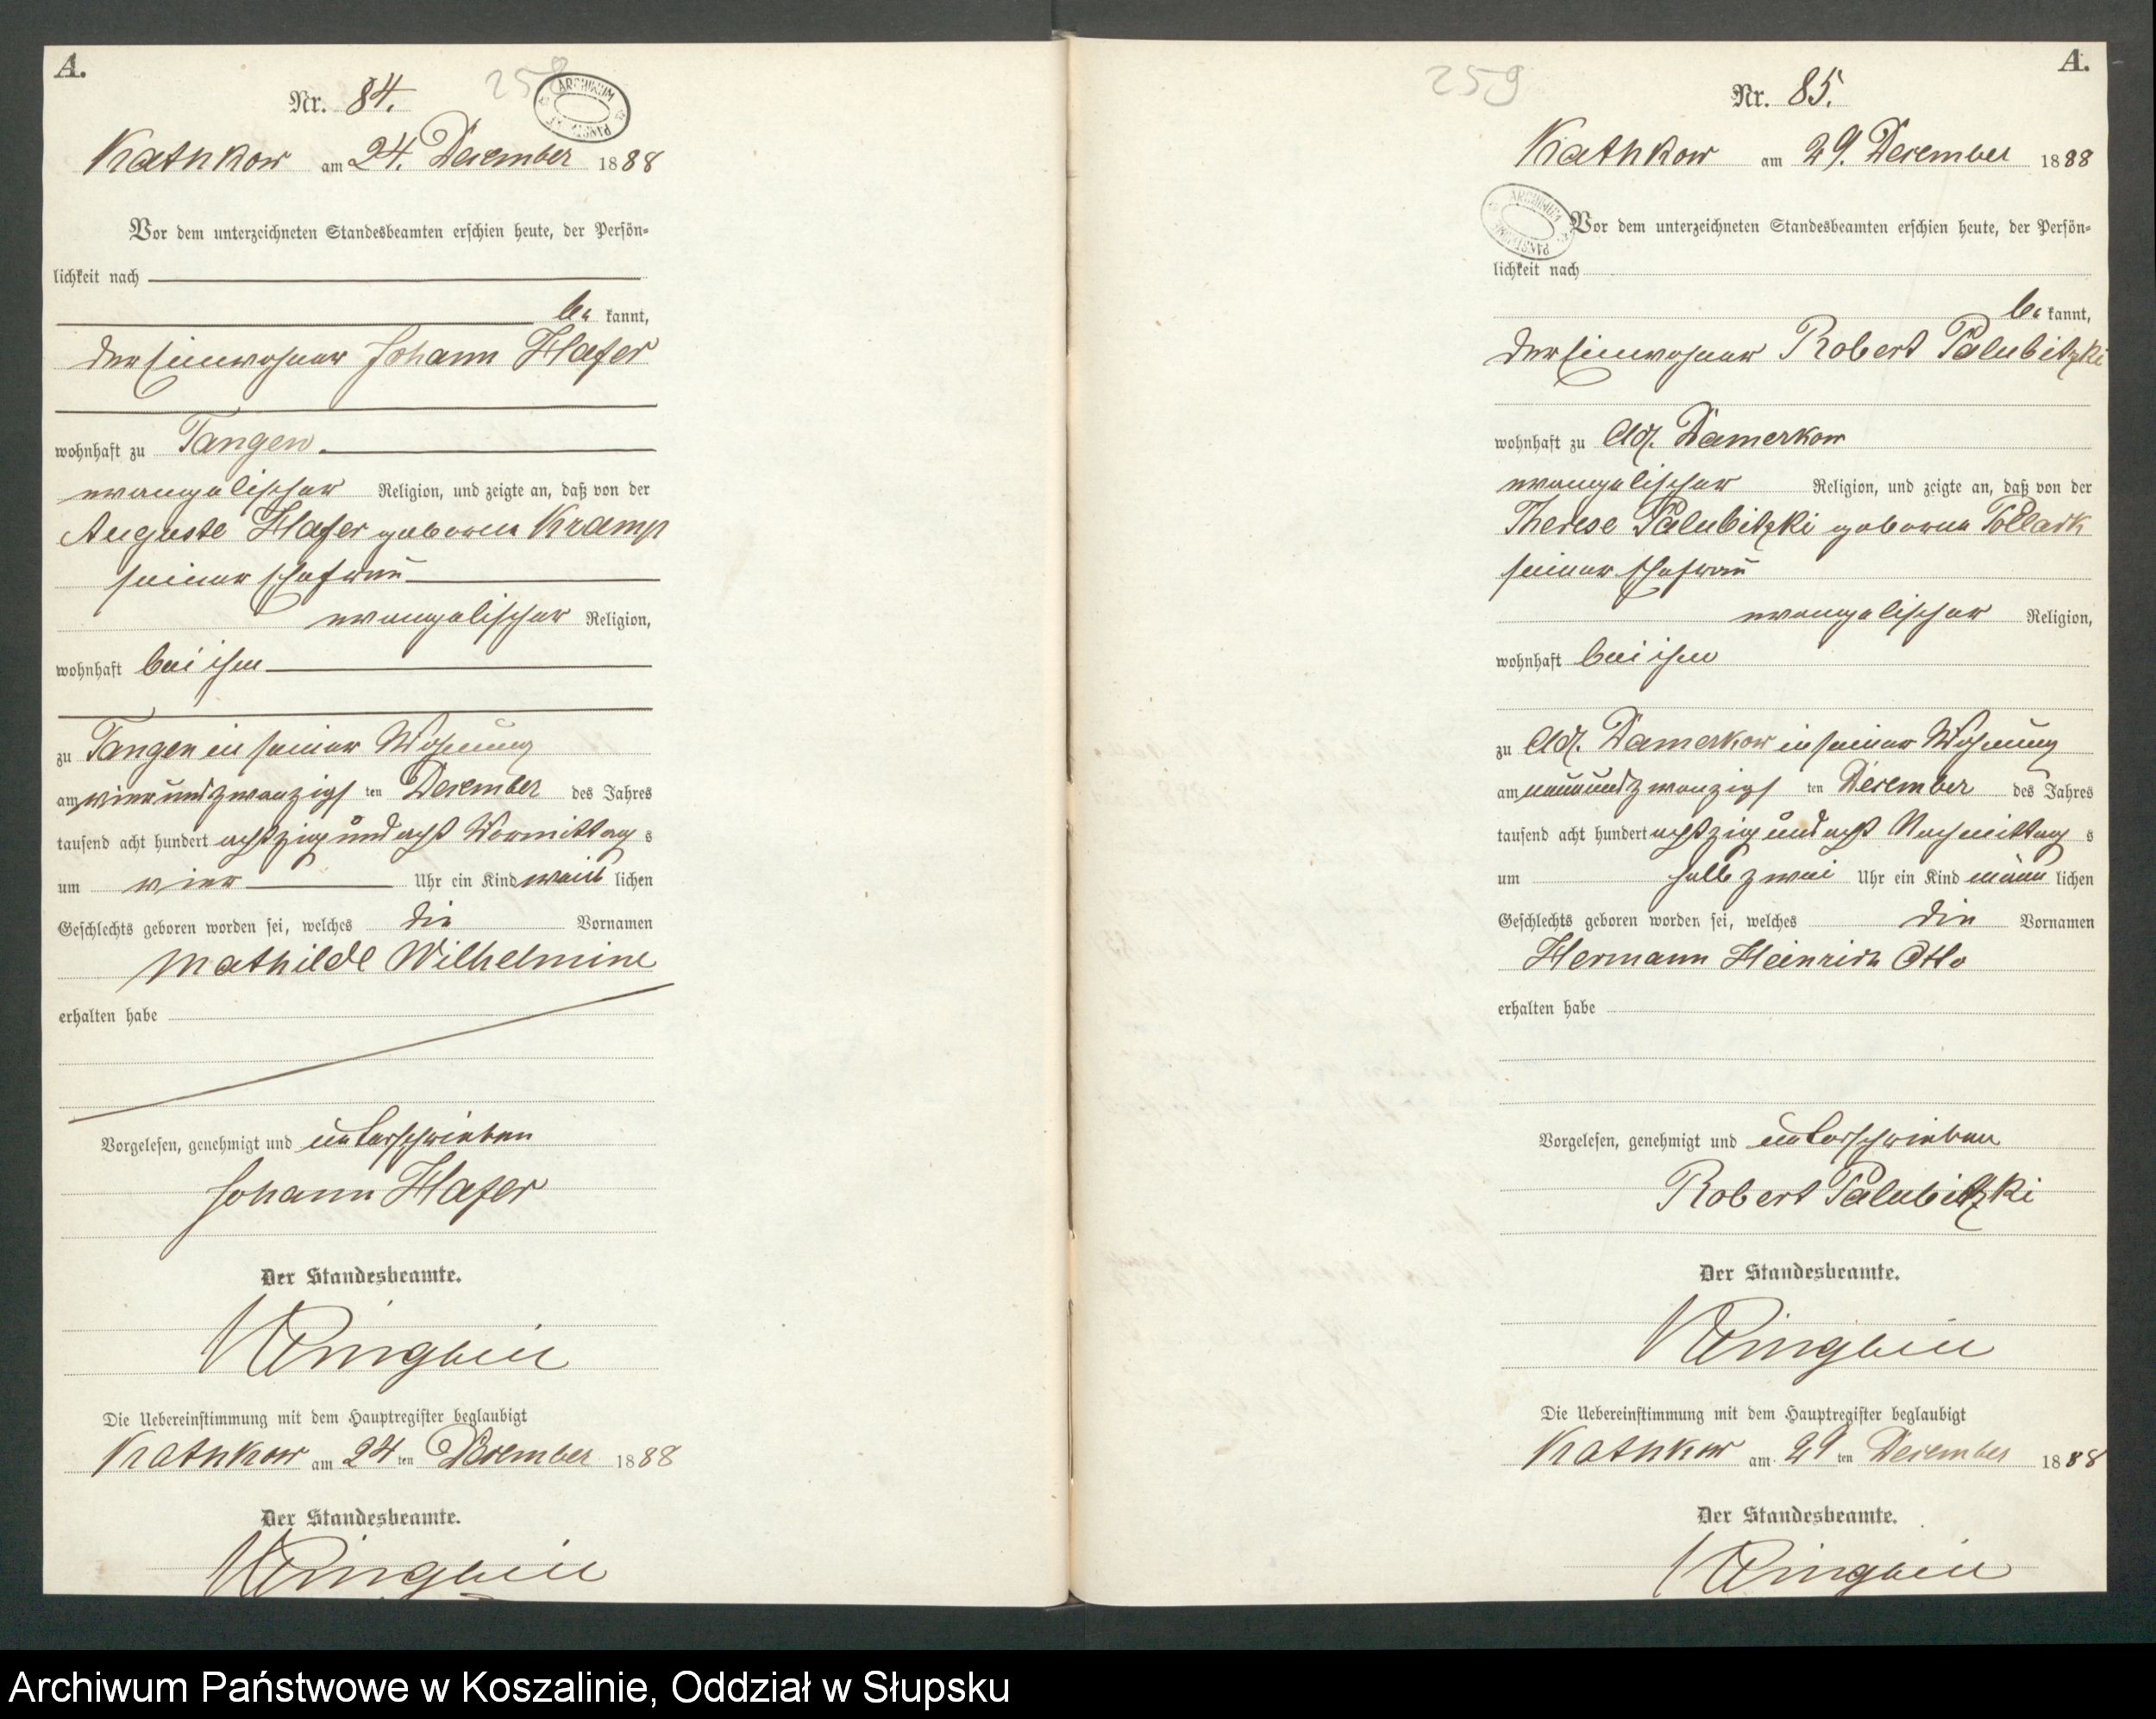 A.
258
Nr. 84.
ARCHIWUM PAŃSTW
Kathkow am 24. December 1888
Vor dem unterzeichneten Standesbeamten erschien heute, der Persön-
lichkeit nach
be kannt,
der Einwohner Johann Hafer
wohnhaft zu Tangen
evangelischer Religion, und zeigte an, daß von der
Auguste Hafer geborne Kramp
seiner Ehefrau
evangelischer Religion,
wohnhaft bei ihm
zu Tangen in seiner Wohnung
am vierundzwanzigs ten December des Jahres
tausend acht hundert achtzig und acht Vormittag s
um vier Uhr ein Kind weib lichen
Geschlechts geboren worden sei, welches die Vornamen
Mathilde Wilhelmine
erhalten habe
Vorgelesen, genehmigt und unterschrieben
Johann Hafer
Der Standesbeamte.
Die Uebereinstimmung mit dem Hauptregister beglaubigt
Kathkow am 24 ten December 1888
Der Standesbeamte.
A.
259
Nr. 85.
Kathkow am 29. December 1888
ARCHIWUM PAŃSTWOWE
Vor dem unterzeichneten Standesbeamten erschien heute, der Persön-
lichkeit nach
be kannt,
der Einwohner Robert Palubitzki
wohnhaft zu Adl. Damerkow
evangelischer Religion, und zeigte an, daß von der
Therese Palubitzki geborne Pollack
seiner Ehefrau
evangelischer Religion,
wohnhaft bei ihm
zu Adl. Damerkow in seiner Wohnung
am neunundzwanzigs ten December des Jahres
tausend acht hundert achtzig und acht Nachmittag s
um halb zwei Uhr ein Kind männ lichen
Geschlechts geboren worden sei, welches die Vornamen
Hermann Heinrich Otto
erhalten habe
Vorgelesen, genehmigt und unterschrieben
Robert Palubitzki
Der Standesbeamte.
Die Uebereinstimmung mit dem Hauptregister beglaubigt
Kathkow am 29 ten December 1888
Der Standesbeamte.
Archiwum Państwowe w Koszalinie, Oddział w Słupsku